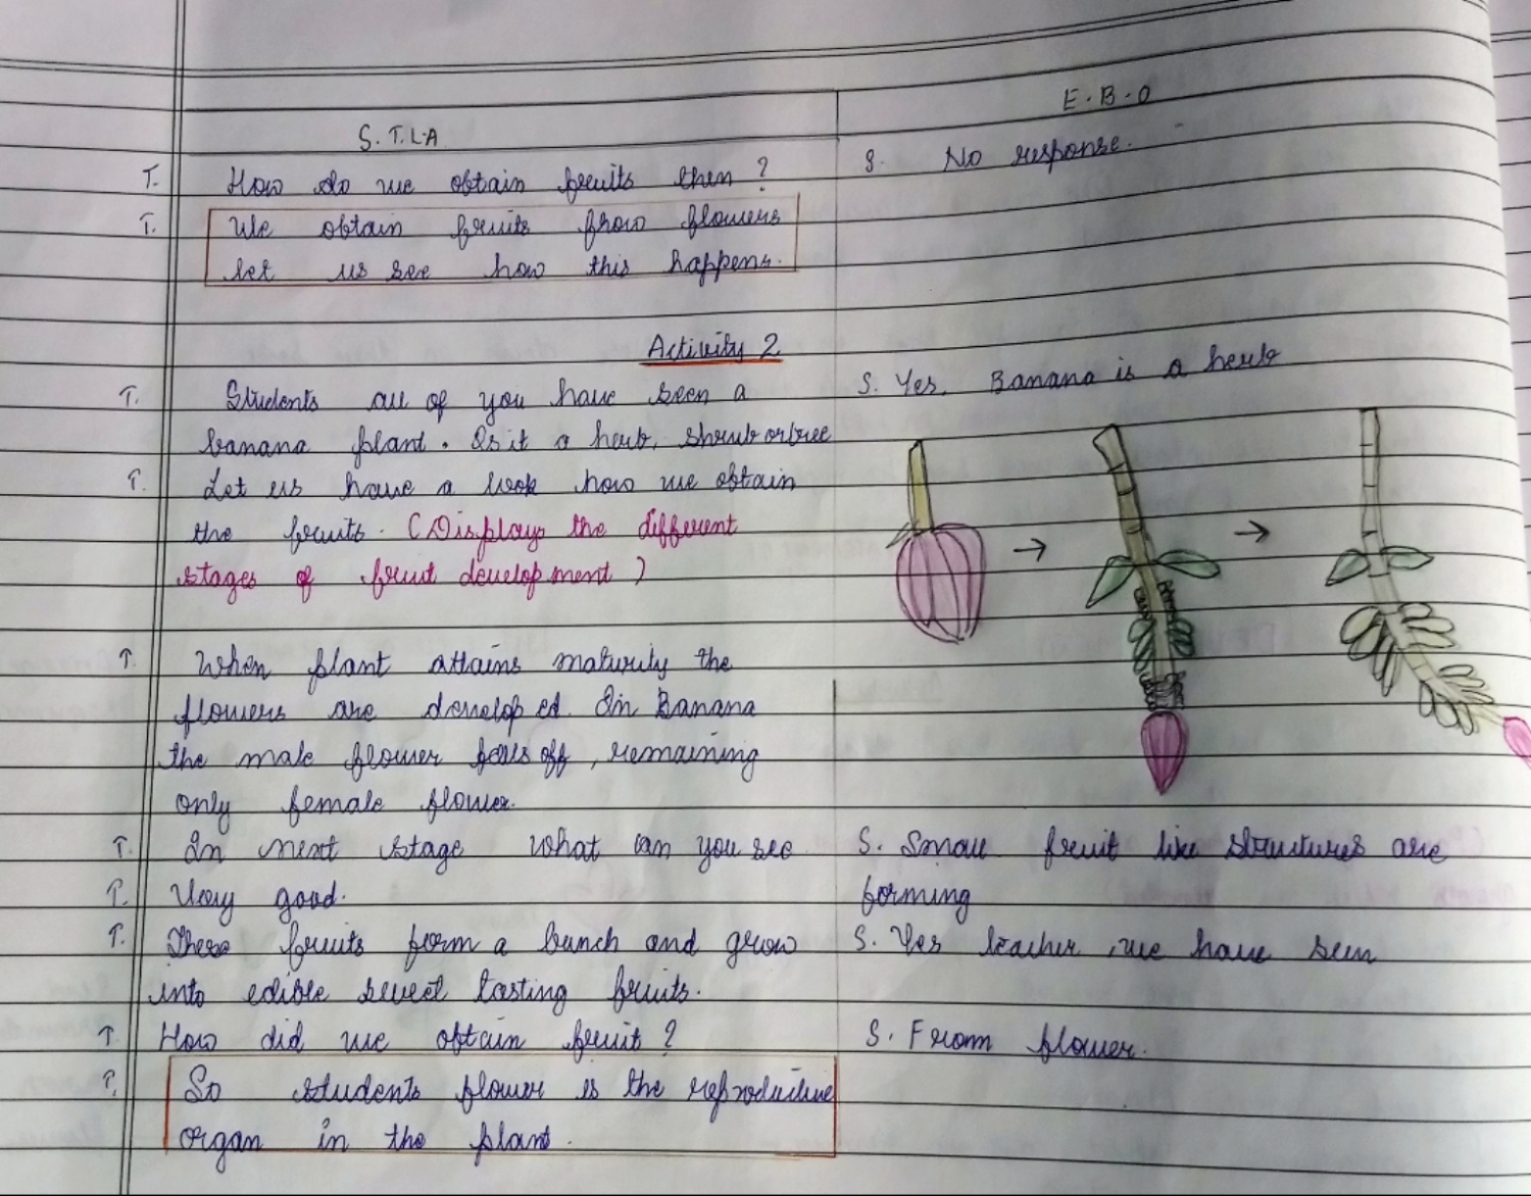 E.B.O
S.T.L.A
T. How do we obtain fruits then ?
S. No response.
T. We obtain fruits from flowers
let us see how this happens.
Activity 2
T. Students all of you have seen a
banana plant. Is it a herb, shrub or tree
S. Yes, Banana is a herb
T. Let us have a look how we obtain
the fruits. (Displays the different
stages of fruit development)
T. When plant attains maturity the
flowers are developed. In Banana
the male flower falls off, remaining
only female flower.
T. In next stage what can you see
S. Small fruit like structures are
forming
T. Very good.
T. These fruits form a bunch and grow
into edible sweet tasting fruits.
S. Yes teacher, we have seen
T. How did we obtain fruit ?
S. From flower.
T. So students flower is the reproductive
organ in the plant.